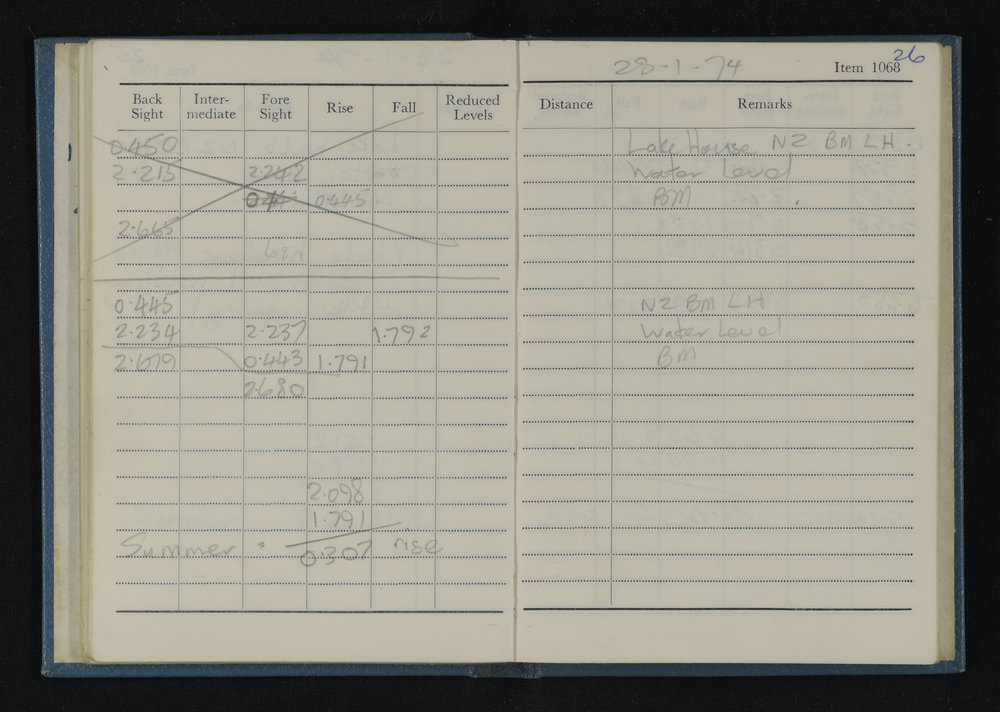 26
28-1-74 Item 1068
Back Sight Inter-mediate Fore Sight Rise Fall Reduced Levels Distance Remarks
0.450 Lake House NZ BM LH.
2.215 2.242 Water Level
0.445 BM
2.665
0.445 NZ BM LH
2.234 2.237 1.792 Water Level
2.679 0.443 1.791 BM
2.680
2.098
1.791
Summer 0.307 rise